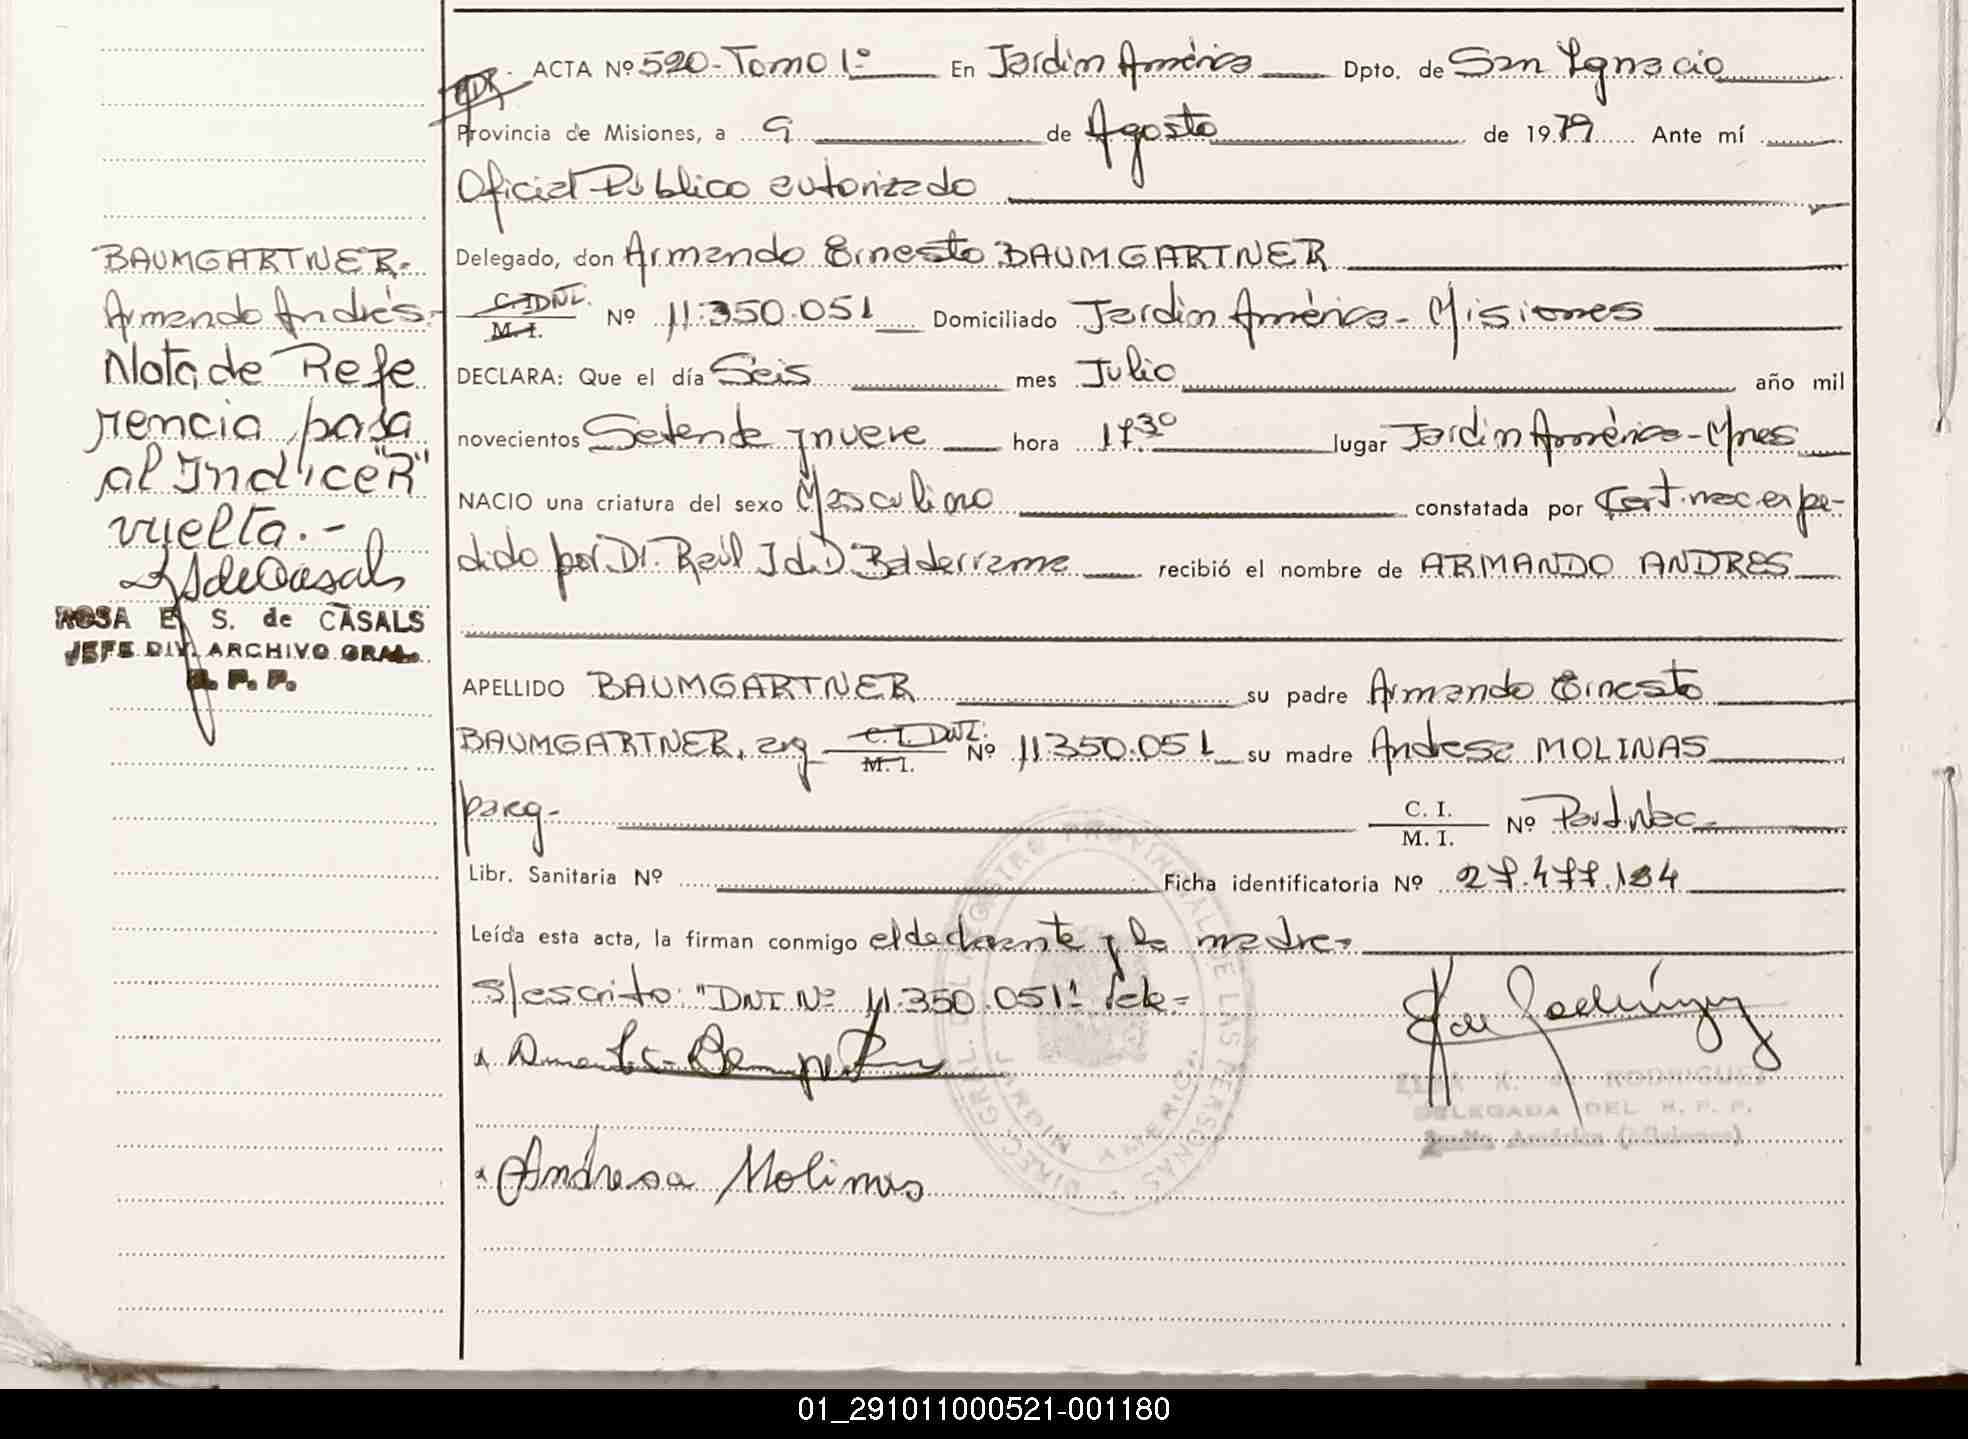 ACTA Nº 520-Tomo 1º En Jardin América Dpto. de San Ignacio
Provincia de Misiones, a 9 de Agosto de 1979 Ante mí
Oficial Público autorizado
Delegado, don Armando Ernesto BAUMGARTNER
C.I. DNI. M.I. Nº 11.350.051 Domiciliado Jardin América - Misiones
DECLARA: Que el día Seis mes Julio año mil
novecientos Setenta y nueve hora 17.30 lugar Jardin América - Mnes
NACIO una criatura del sexo Masculino constatada por Cert. nac. expe-
dido por Dr. Raúl J d D Balderrama recibió el nombre de ARMANDO ANDRES
APELLIDO BAUMGARTNER su padre Armando Ernesto
BAUMGARTNER, arg C.I. DNI. M.I. Nº 11.350.051 su madre Andresa MOLINAS
parag- C. I. M. I. Nº Part. Nac.
Libr. Sanitaria Nº Ficha identificatoria Nº 27.477.184
Leída esta acta, la firman conmigo el declarante y la madre-
S/escrito: "DNI Nº 11.350.051" Vale-
Andresa Molinas
RODRIGUEZ
DELEGADA DEL R. P. P.
(Misiones)
DIREC. GRAL. DEL REGISTRO PROVINCIAL DE LAS PERSONAS
JARDIN AMERICA
BAUMGARTNER-
Armando Andrés-
Nota de Refe
rencia pasa
al Indice "R"
vuelta.-
ROSA E. S. de CASALS
JEFE DIV. ARCHIVO GRAL.
R. P. P.
01_291011000521-001180